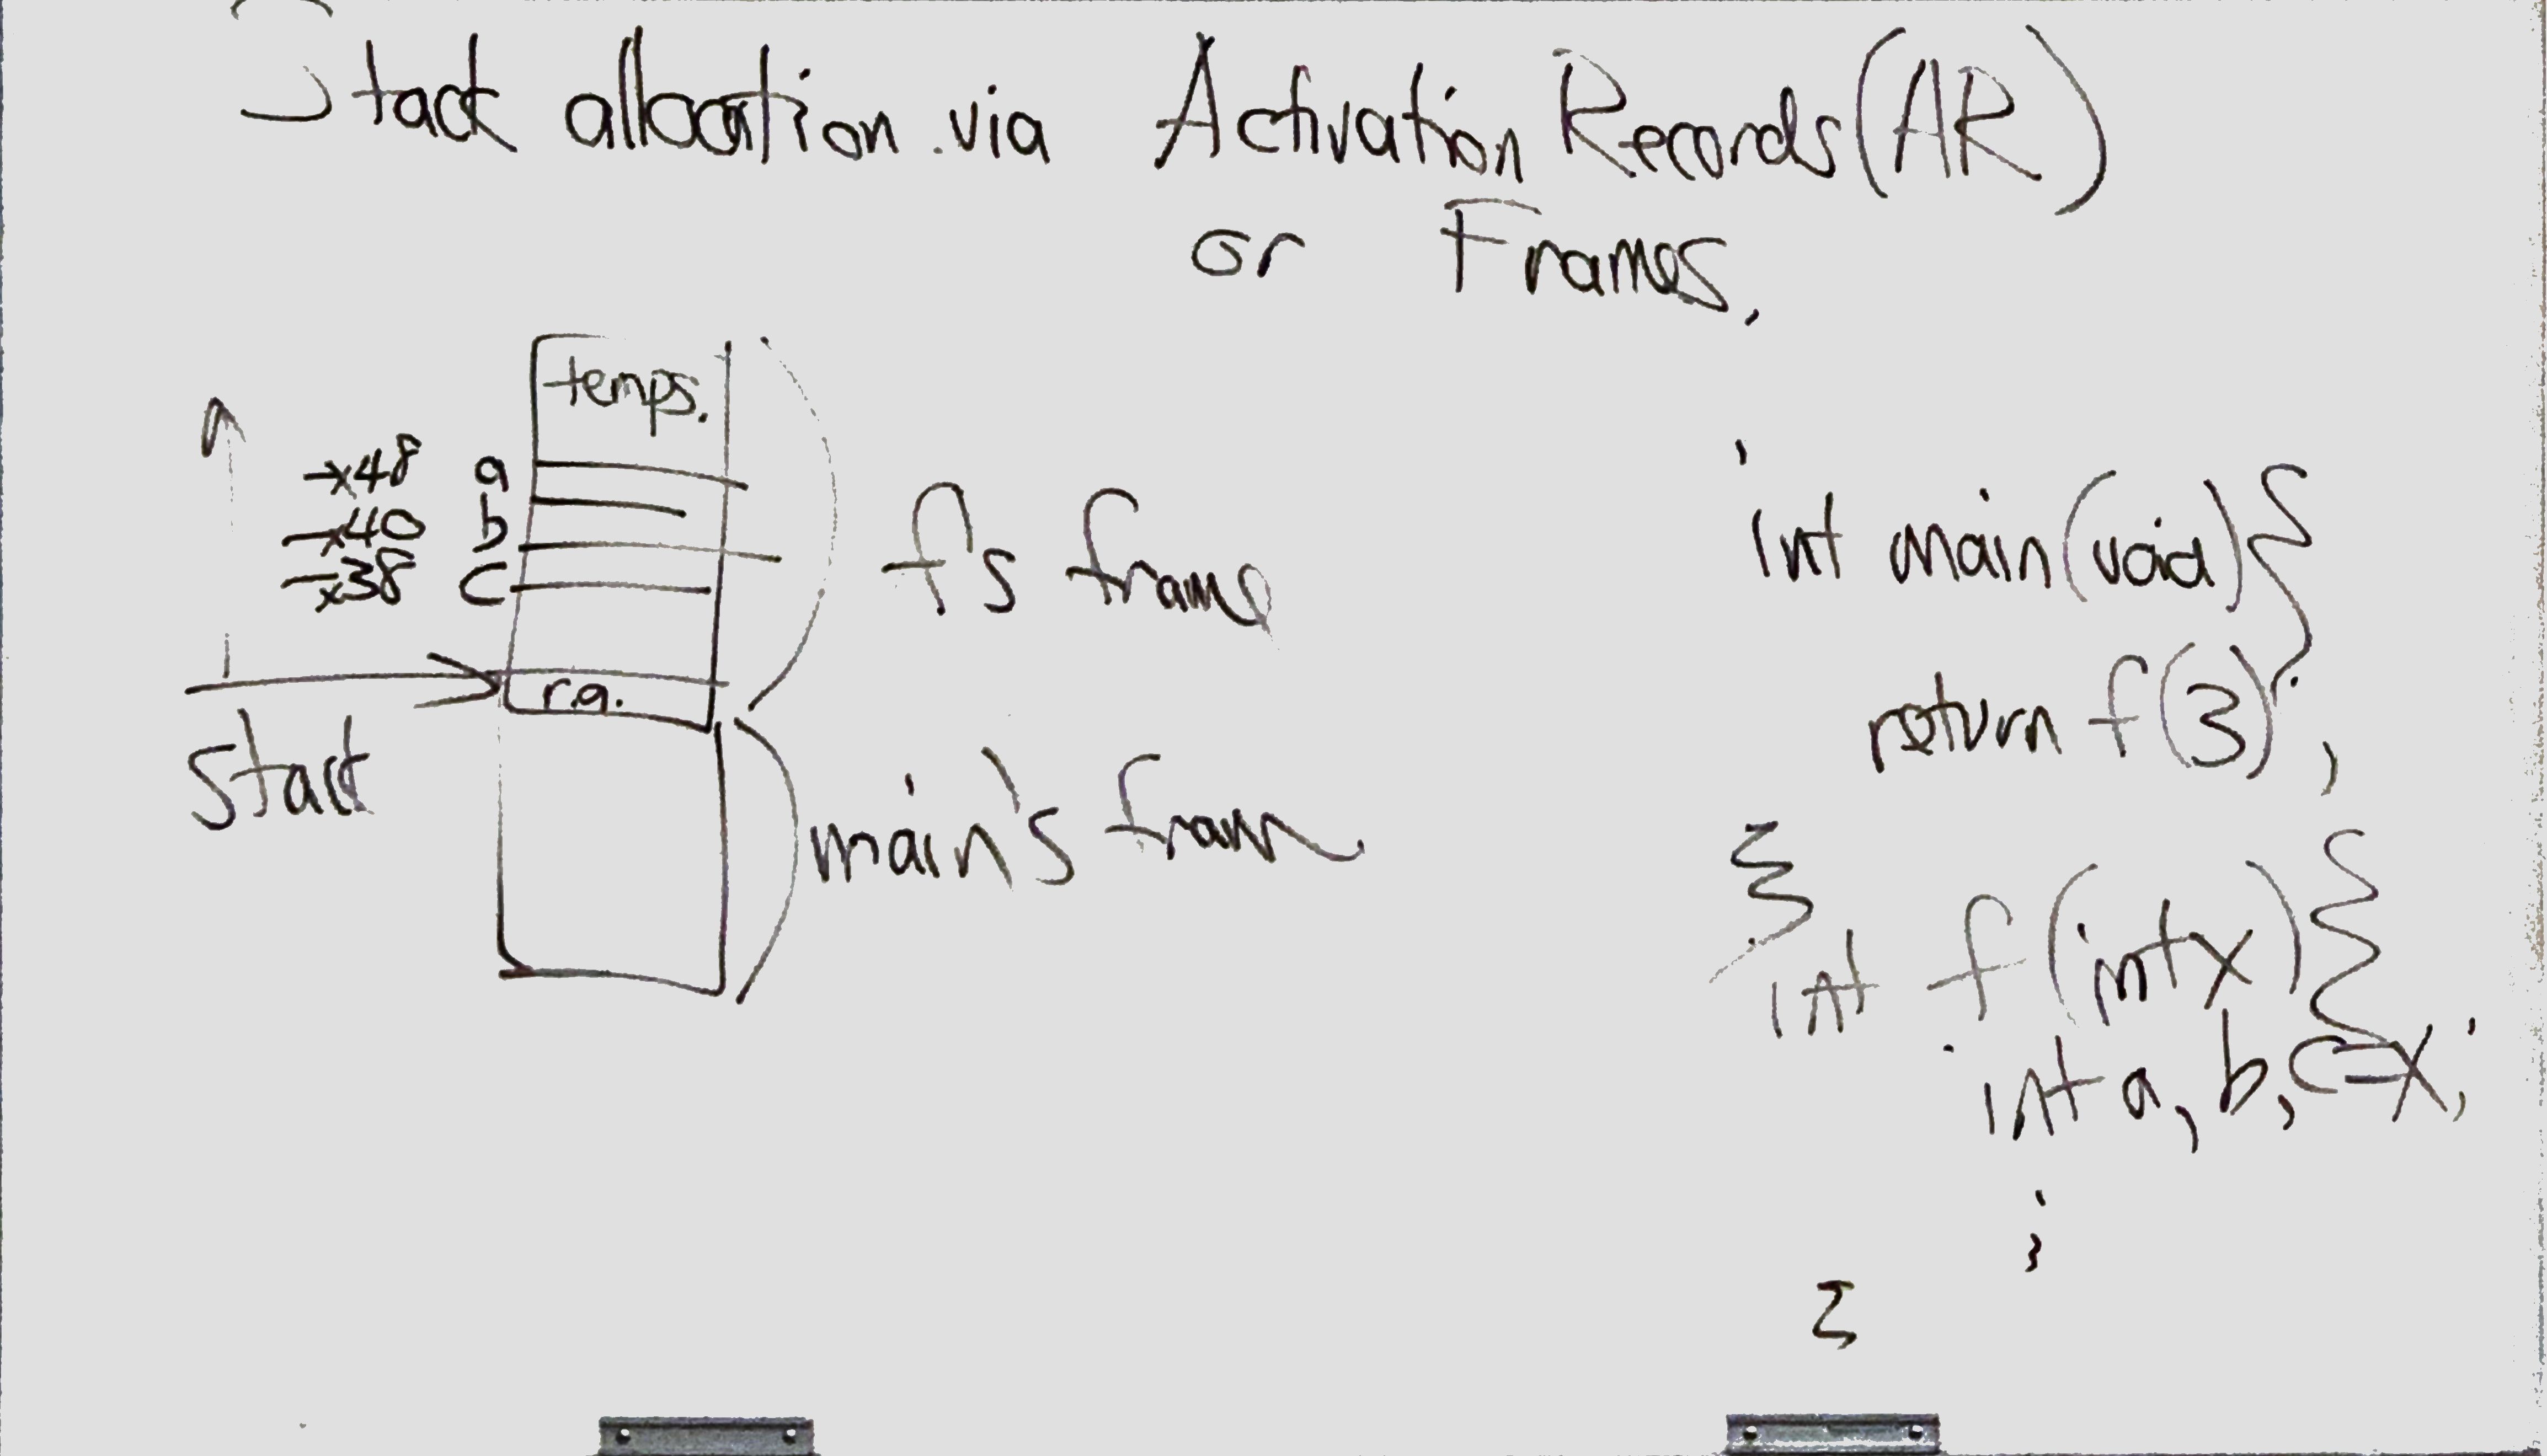 Stack allocation via Activation Records (AR)
or Frames.
temps.
-x48 a
-x40 b
-x38 c
r.a.
f's frame
start
main's frame
int main(void){
return f(3);
}
int f(int x){
int a, b, c=x;
}